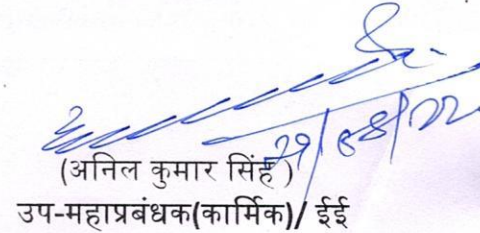 29/08/22
(अनिल कुमार सिंह)
उप-महाप्रबंधक(कार्मिक)/ ईई